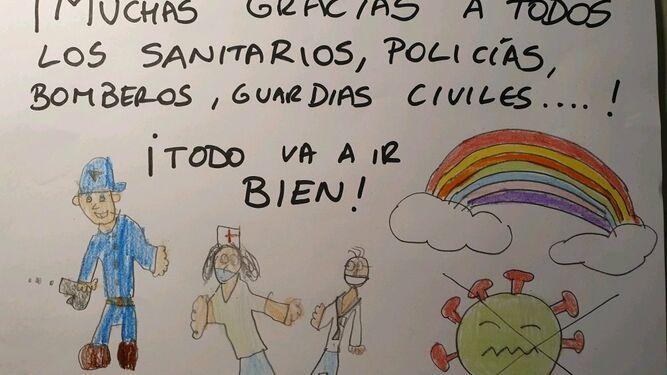 ¡MUCHAS GRACIAS A TODOS
LOS SANITARIOS, POLICÍAS,
BOMBEROS, GUARDIAS CIVILES....!
¡TODO VA A IR
BIEN!